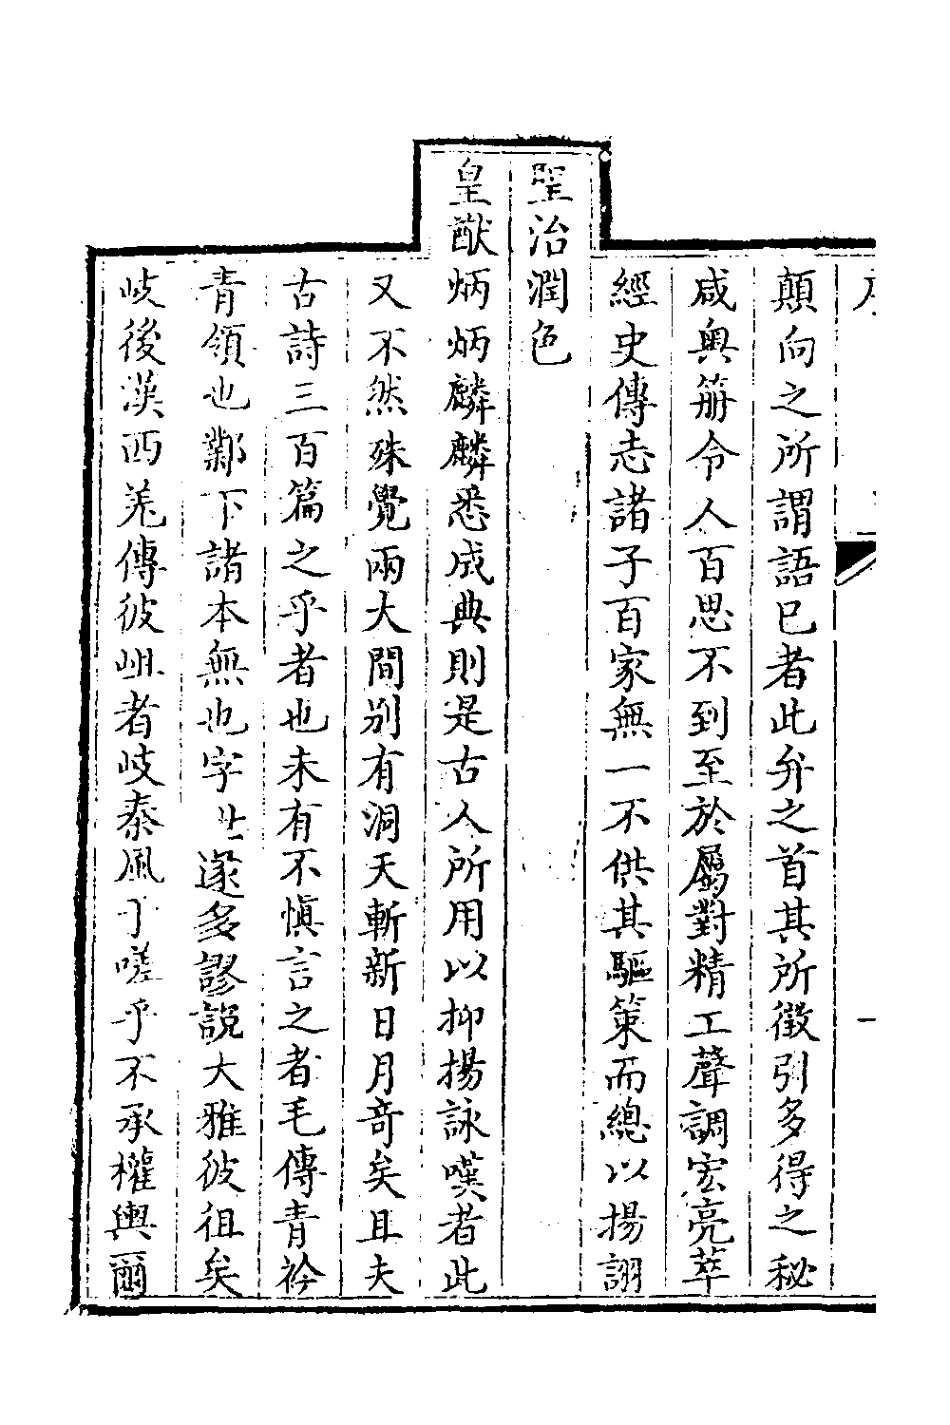 顛向之所謂語已者此弁之首其所徵引多得之秘
咸奥册令人百思不到至於屬對精工聲調宏亮萃
經史傳志諸子百家無一不供其驅策而總以揚詡
聖治潤色
皇猷炳炳麟麟悉成典則是古人所用以抑揚詠嘆者此
又不然殊覺兩大間别有洞天斬新日月竒矣且夫
古詩三百篇之乎者也未有不慎言之者毛傳青衿
青領也鄴下諸本無也字遂多謬說大雅彼徂矣
岐後漢西羌傳彼岨者岐秦風于嗟乎不承權輿爾